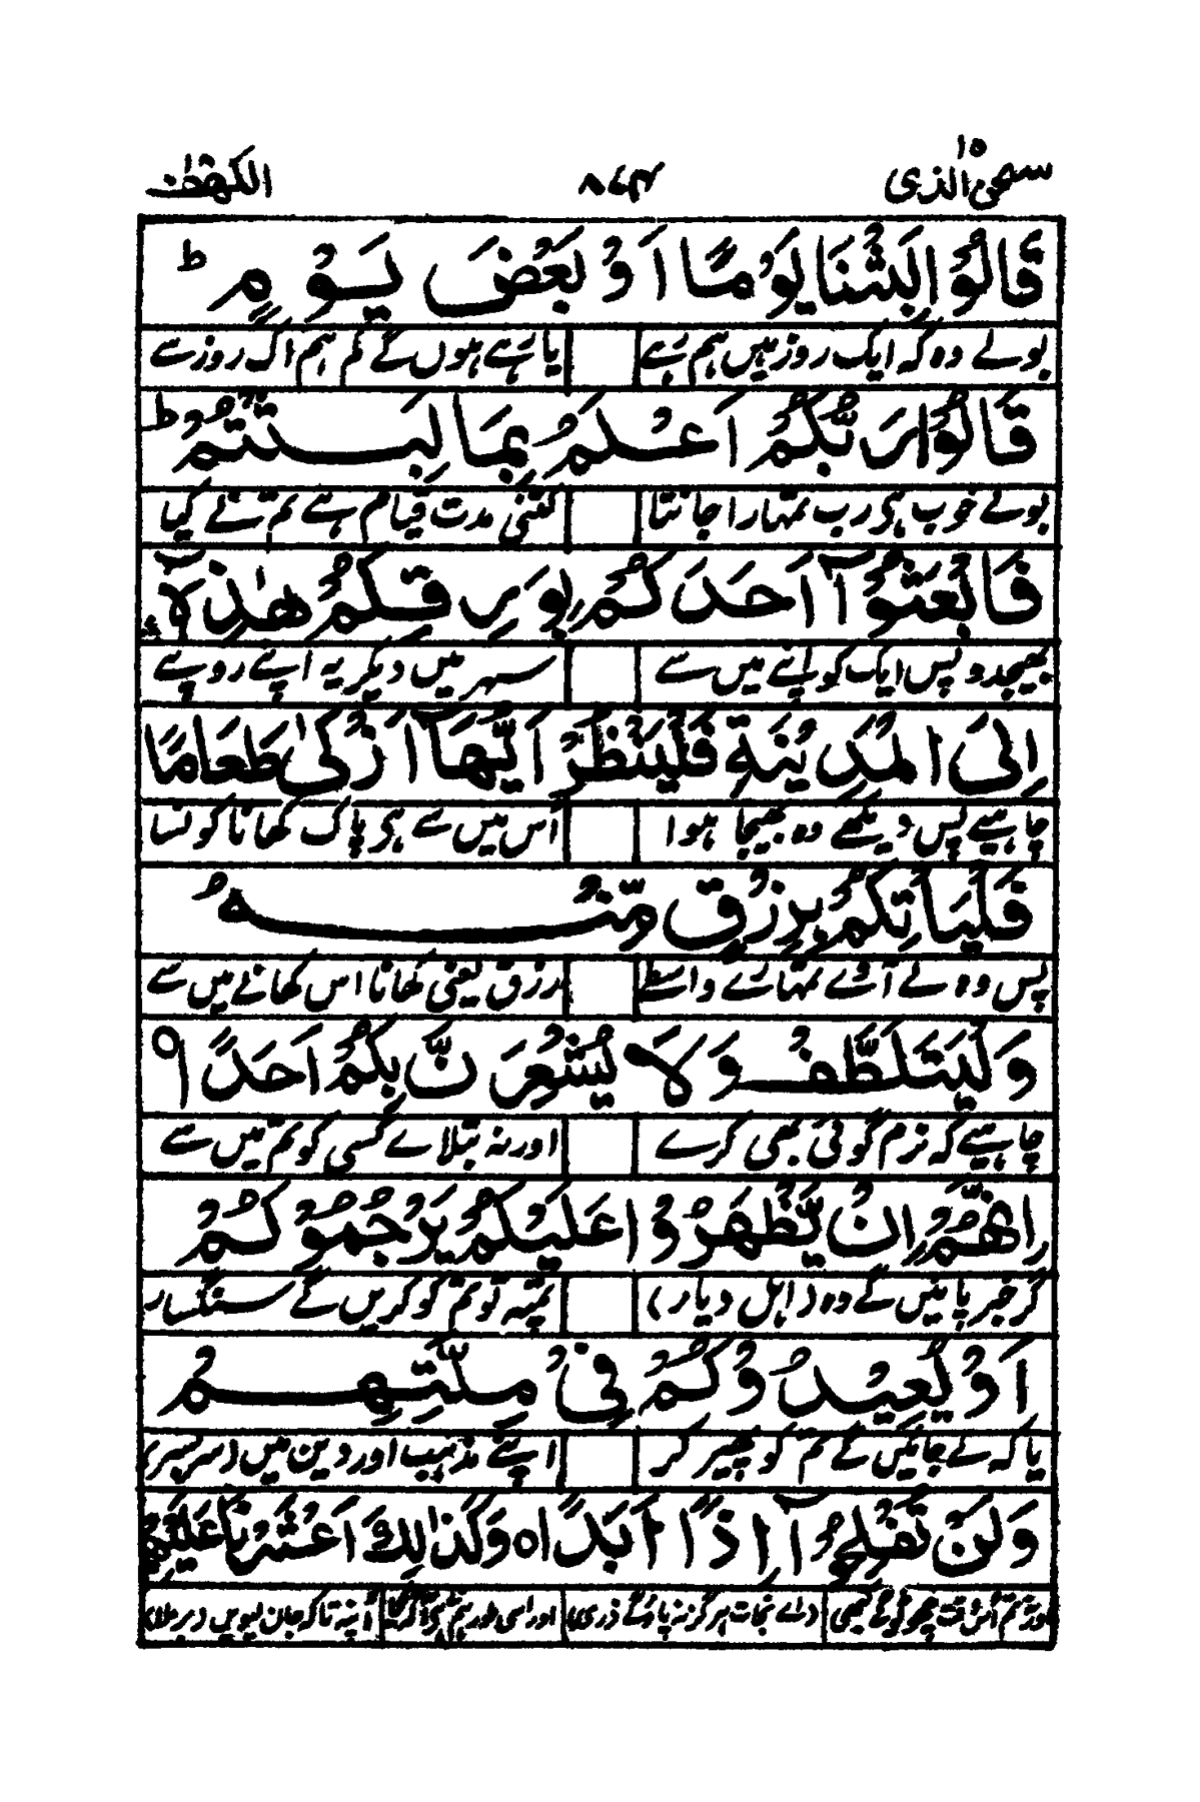 سبحٰن الذی ۱۵ ۸۷۴ الکھف
قَالُوْا لَبِثْنَا يَوْمًا اَوْ بَعْضَ يَوْمٍ ؕ
بولے وہ کہ ایک روز میں ہم رہے یا رہے ہوں گے کم ہم اک روز سے
قَالُوْا رَبُّكُمْ اَعْلَمُ بِمَا لَبِثْتُمْ ؕ
بولے خوب ہی رب تمہارا جانتا کتنی مدت قیام ہے تم نے کیا
فَابْعَثُوْۤا اَحَدَكُمْ بِوَرِقِكُمْ هٰذِهٖۤ
بھیجدو پس ایک کو اپنے میں سے شہر میں دیکر یہ اپنے روپے
اِلَى الْمَدِيْنَةِ فَلْيَنْظُرْ اَيُّهَاۤ اَزْكٰى طَعَامًا
چاہیے پس دیکھے وہ بھیجا ہوا اس میں سے ہی پاک کھانا کونسا
فَلْيَاْتِكُمْ بِرِزْقٍ مِّنْهُ
پس وہ لے آئے تمہارے واسطے رزق یعنی کھانا اس کھانے میں سے
وَلْيَتَلَطَّفْ وَلَا يُشْعِرَنَّ بِكُمْ اَحَدًا ۹
چاہیے کہ نرم گوئی بھی کرے اور نہ بتلاے کسی کو تم میں سے
اِنَّهُمْ اِنْ يَّظْهَرُوْا عَلَيْكُمْ يَرْجُمُوْكُمْ
گر خبر پائیں گے وہ (اہل دیار) پتہ تو تم کو کریں گے سنگسار
اَوْ يُعِيْدُوْكُمْ فِيْ مِلَّتِهِمْ
یا کہ لے جائیں گے تم کو پھیر کر اپنے مذہب اور دین میں (سربسر)
وَلَنْ تُفْلِحُوْۤا اِذًا اَبَدًا ٥ وَكَذٰلِكَ اَعْثَرْنَا عَلَيْهِمْ
اور تم اس وقت پھر کوئی بھی ہرگز نہ پاؤگے ذری اور اسی طور ہم نے تاکہ جان لیویں